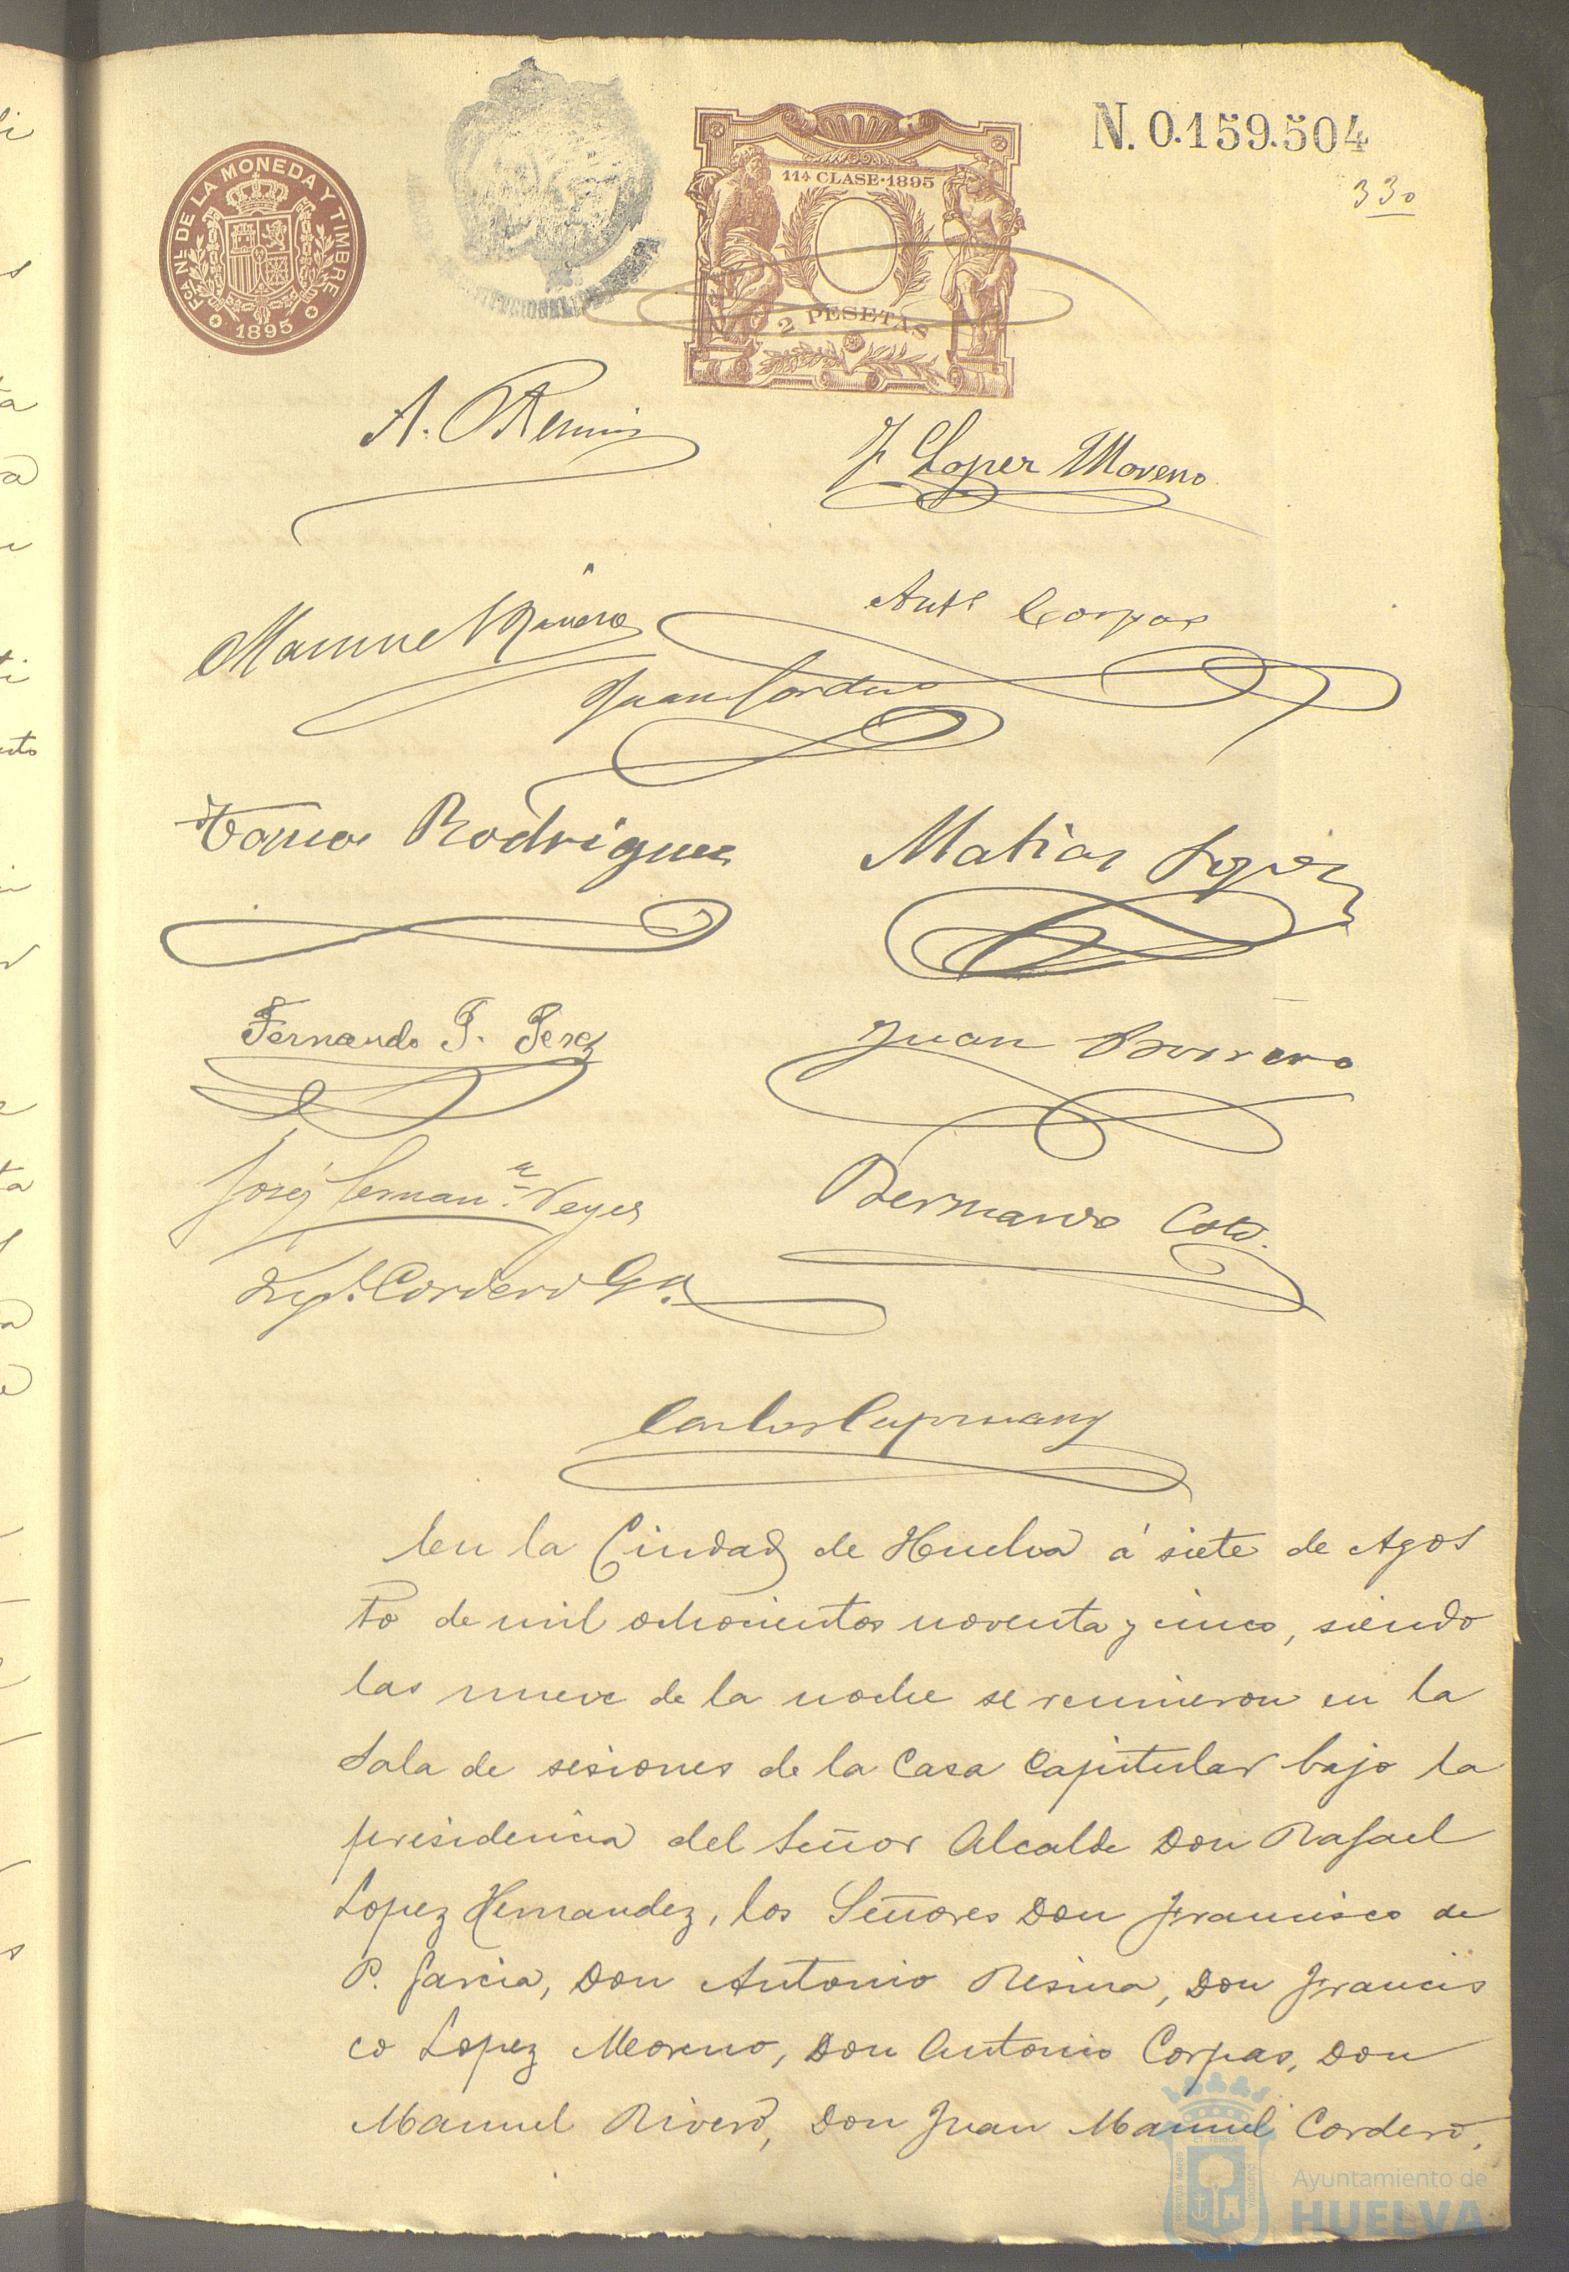 N. 0.159.504
330
FCA NL DE LA MONEDA Y TIMBRE
1895
11ª CLASE·1895
2 PESETAS
A. Resina
F Lopez Moreno
Manuel Rivero
Antº Corpas
Juan Cordero
Tomas Rodriguez
Matias Lopez
Fernando P. Perez
Juan Borrero
José Fernanz Reyes
Bernardo Coto.
Cordero Ga.
Carlos
En la Ciudad de Huelva á siete de Agos
to de mil ochocientos noventa y cinco, siendo
las nueve de la noche se reunieron en la
Sala de sesiones de la Casa Capitular bajo la
presidencia del Señor Alcalde Don Rafael
Lopez Hernandez, los Señores Don Francisco de
P. Garcia, Don Antonio Resina, Don Francis
co Lopez Moreno, Don Antonio Corpas, Don
Manuel Rivero, Don Juan Manuel Cordero,
Ayuntamiento de
HUELVA